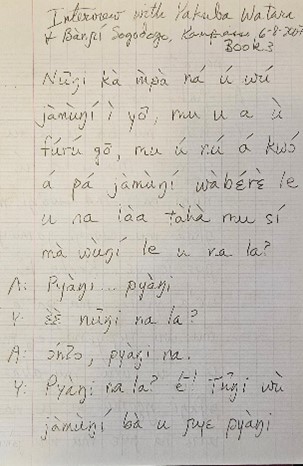 Interview with Yakuba Watara
& Bànjí Sogodogo, 6-8-2007
BOOK 3
Nūŋi kà m̀pà ná ú wú
jàmùŋí ì yō, mu u a ù
fúru gō, mu ú nú á kwó
á pá jàmùŋí wàbɛ́rɛ̀ le
u na làa tàhà mu sí
mà wùŋí le u na la?
A: Pyàŋi... pyàŋi
Y: ɛ̀ɛ̀ nūŋi na la?
A: pyàŋi na.
Y: Pyàŋi na la? Tūŋi wù
jàmùŋí bà u pyàŋi